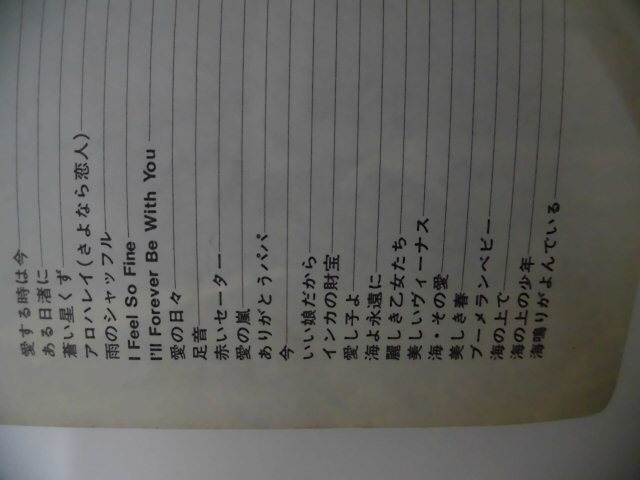 愛する時は今
ある日渚に
蒼い星くず
アロハレイ(さよなら恋人)
雨のシャッフル
I Feel So Fine
I'll Forever Be With You
愛の日々
足音
赤いセーター
愛の嵐
ありがとうパパ
今
いい娘だから
インカの財宝
愛し子よ
海よ永遠に
麗しき乙女たち
美しいヴィーナス
海・その愛
美しき春
ブーメランベビー
海の上で
海の上の少年
海鳴りがよんでいる